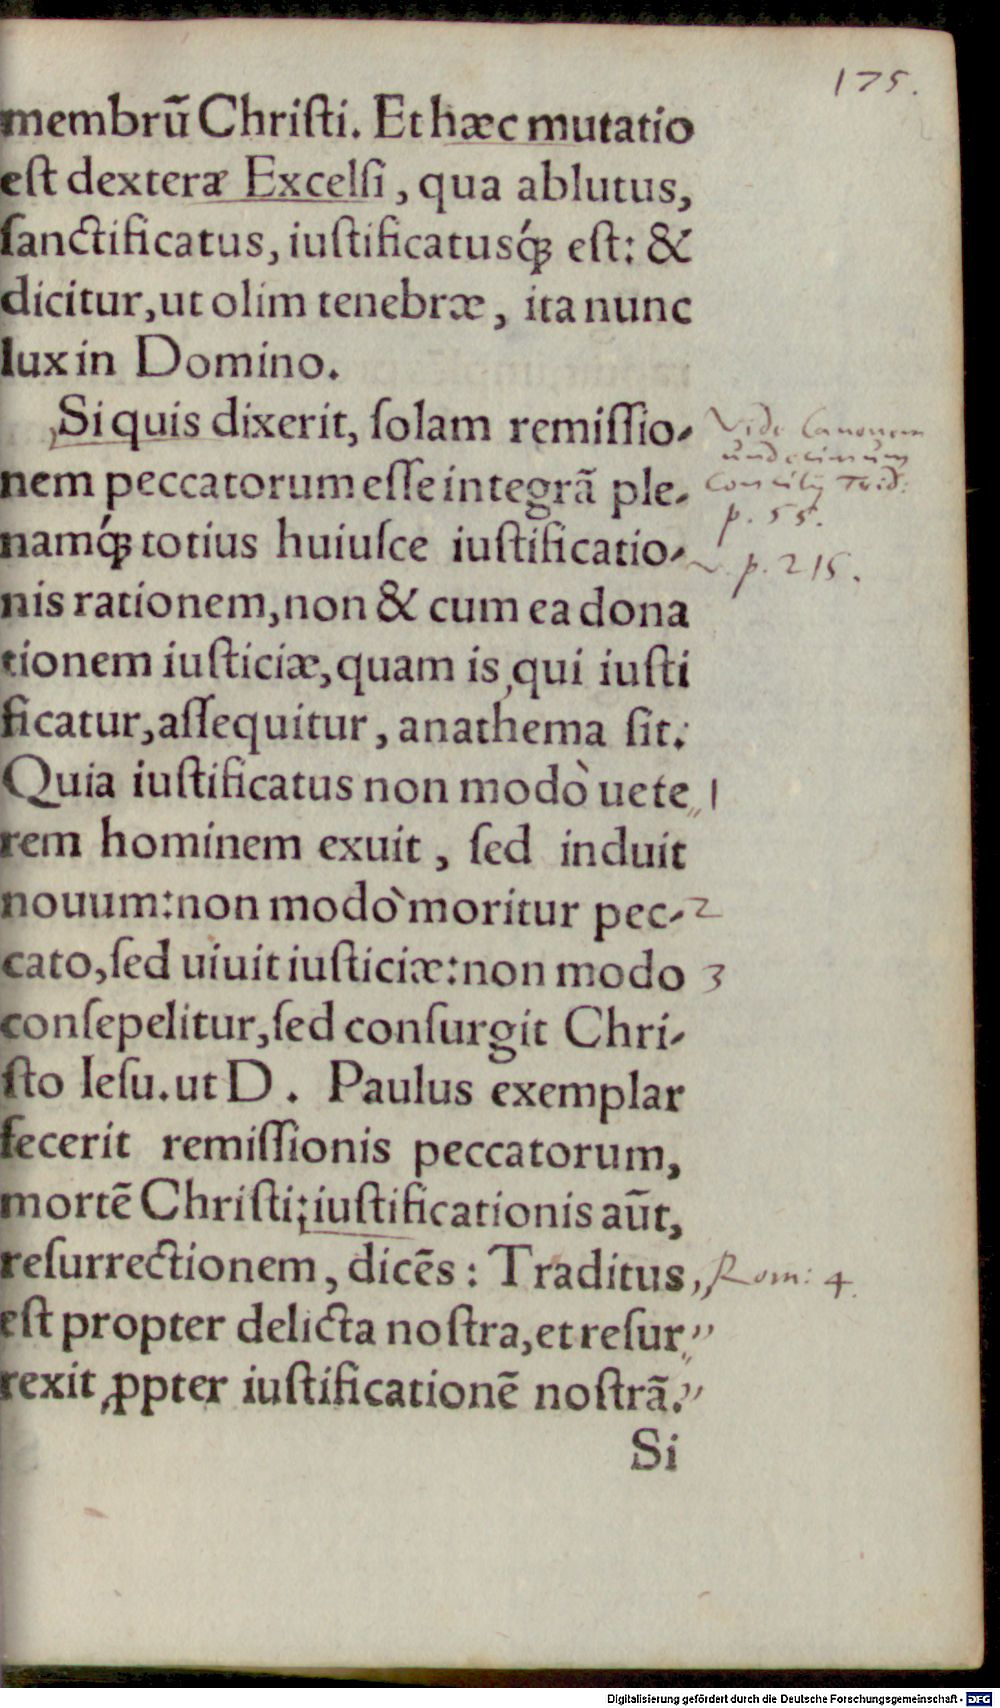 175.
membrũ Chriſti. Et hæc mutatio
eſt dexteræ Excelſi, qua ablutus,
ſanctificatus, iuſtificatusq́ꝫ eſt: &
dicitur, ut olim tenebræ, ita nunc
lux in Domino.
Si quis dixerit, ſolam remiſſio-
nem peccatorum eſſe integrã ple-
namq́ꝫ totius huiuſce iuſtificatio-
nis rationem, non & cum ea dona
tionem iuſticiæ, quam is, qui iuſti
ficatur, aſſequitur, anathema ſit:
Quia iuſtificatus non modò uete
rem hominem exuit, ſed induit
nouum: non modò moritur pec-
cato, ſed uiuit iuſticiæ: non modo
conſepelitur, ſed conſurgit Chri-
ſto Ieſu. ut D. Paulus exemplar
fecerit remiſſionis peccatorum,
mortẽ Chriſti: iuſtificationis aũt,
reſurrectionem, dicẽs: Traditus
eſt propter delicta noſtra, et reſur
rexit ꝓpter iuſtificationẽ noſtrã.
Si
Vide Canonem
undecimum
Concilij Trid:
p. 55.
v. p. 215.
1
2
3
Rom: 4.
Digitalisierung gefördert durch die Deutsche Forschungsgemeinschaft - DFG